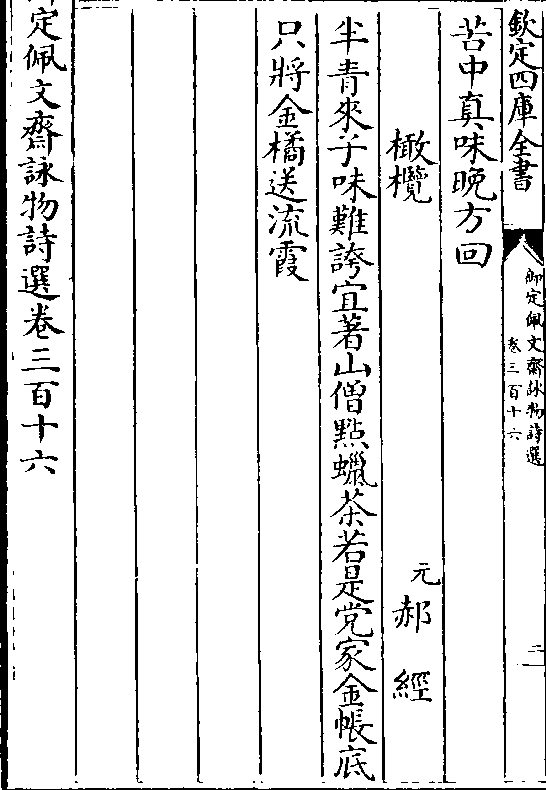 欽定四庫全書
御定佩文齋詠物詩選
卷三百十六
二
苦中真味晚方回
橄欖
元郝經
半青來子味難誇宜著山僧點蠟茶若是党家金帳底
只將金橘送流霞
御定佩文齋詠物詩選卷三百十六